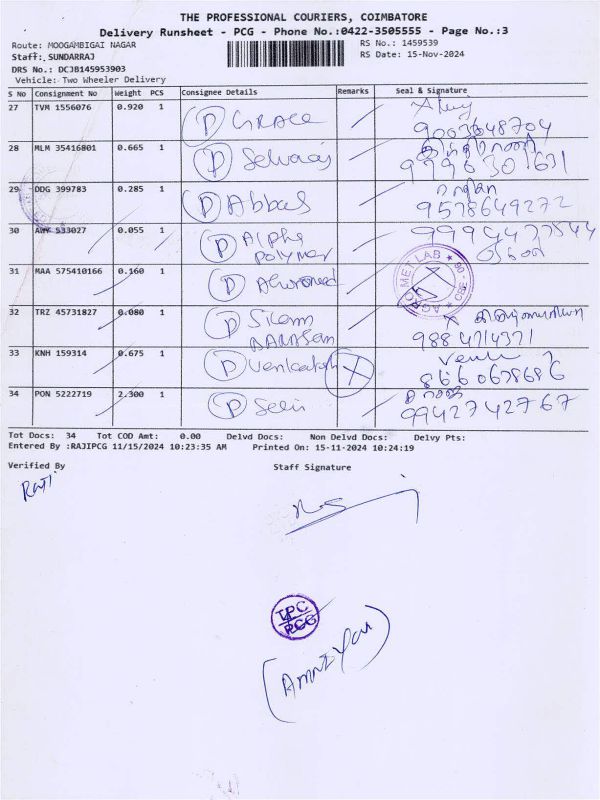 THE PROFESSIONAL COURIERS, COIMBATORE
Delivery Runsheet - PCG - Phone No.:0422-3505555 - Page No.:3
Route: MOOGAMBIGAI NAGAR
RS No.: 1459539
Staff: SUNDARRAJ
RS Date: 15-Nov-2024
DRS No.: DCJB145953903
Vehicle: Two Wheeler Delivery
S No Consignment No Weight PCS Consignee Details Remarks Seal & Signature
27 TVM 1556076 0.920 1 D GRACE
9003648704
28 MLM 35416801 0.665 1 D Selvaraj
9796301631
29 DDG 399783 0.285 1 D Abbas
9578649272
30 AWY 533027 0.055 1 D Alpha polymer 9994477544
31 MAA 575410166 0.160 1 D
AGROC MET LAB * CBE - 06 *
32 TRZ 45731827 0.080 1 D
9884714371
33 KNH 159314 0.675 1 D Venkatesh X Venk
8660678686
34 PON 5222719 2.300 1 D Selvi
9942742767
Tot Docs: 34 Tot COD Amt: 0.00 Delvd Docs: Non Delvd Docs: Delvy Pts:
Entered By :RAJIPCG 11/15/2024 10:23:35 AM Printed On: 15-11-2024 10:24:19
Verified By Staff Signature
Raji
TPC
PCG